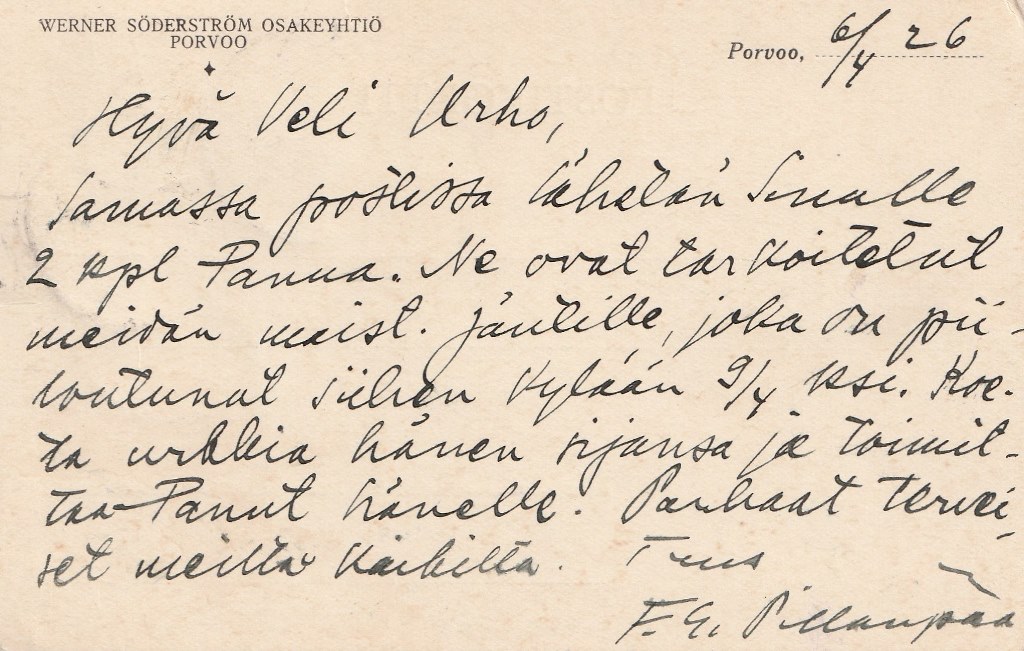 WERNER SÖDERSTRÖM OSAKEYHTIÖ
PORVOO
Porvoo, 6/4 26
Hyvä Veli Urho,
Samassa postissa lähetän Sinulle
2 kpl Panua. Ne ovat tarkoitetut
meidän maist. Jäntille, joka on pii-
loutunut siihen kylään 9/4 ksi. Koe-
ta urkkia hänen sijansa ja toimit-
taa Panut hänelle. Parhaat tervei-
set meiltä kaikilta. Tuus
F. E. Sillanpää